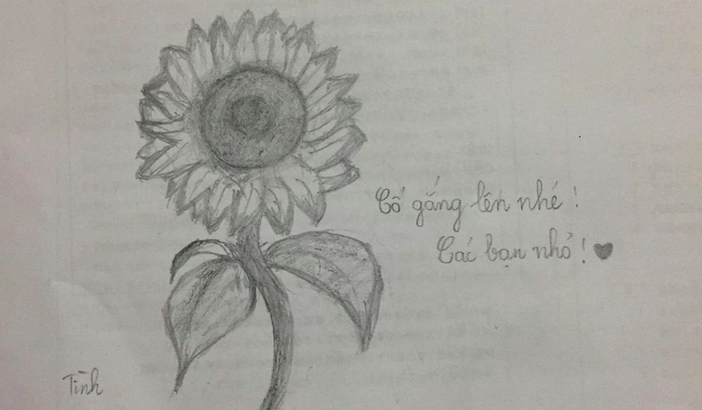 Cố gắng lên nhé !
Các bạn nhỏ ! ♥
Tình